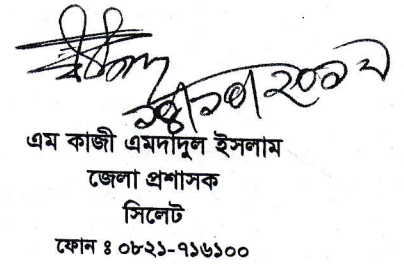 এম কাজী এমদাদুল ইসলাম
জেলা প্রশাসক
সিলেট
ফোন ঃ ০৮২১-৭১৬১০০